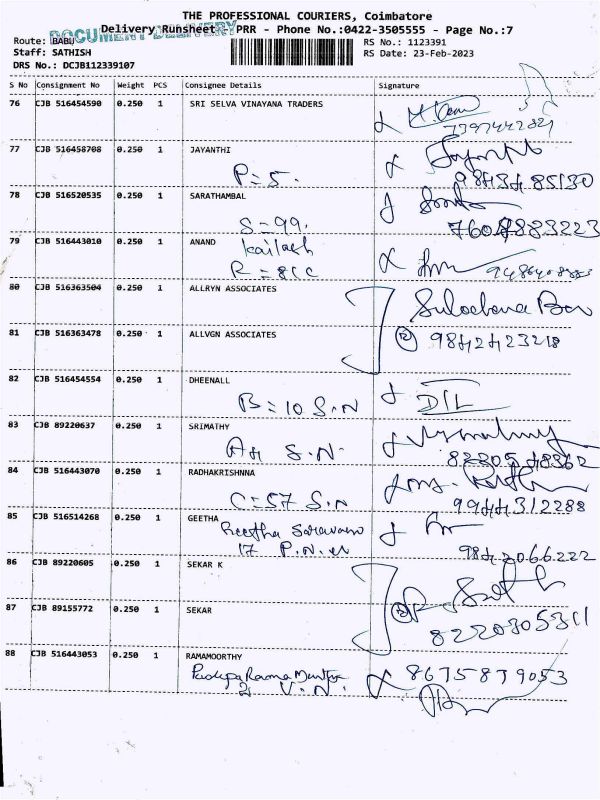 THE PROFESSIONAL COURIERS, Coimbatore
Delivery Runsheet - PRR - Phone No.:0422-3505555 - Page No.:7
DOCUMENT DELIVERY
Route: BABU
RS No.: 1123391
Staff: SATHISH
RS Date: 23-Feb-2023
DRS No.: DCJB112339107
S No Consignment No Weight PCS Consignee Details Signature
76 CJB 516454590 0.250 1 SRI SELVA VINAYANA TRADERS
77 CJB 516458708 0.250 1 JAYANTHI
P = 5.
78 CJB 516520535 0.250 1 SARATHAMBAL
S = 99.
79 CJB 516443010 0.250 1 ANAND
Kailash
80 CJB 516363504 0.250 1 ALLRYN ASSOCIATES
Sulochana
81 CJB 516363478 0.250 1 ALLVGN ASSOCIATES
2 9842423218
82 CJB 516454554 0.250 1 DHEENALL
B = 10 S.N
83 CJB 89220637 0.250 1 SRIMATHY
S.N.
84 CJB 516443070 0.250 1 RADHAKRISHNNA
C = 57 S.N
9944312288
85 CJB 516514268 0.250 1 GEETHA
17 P.N.
9842066222
86 CJB 89220605 0.250 1 SEKAR K
87 CJB 89155772 0.250 1 SEKAR
2
8220305311
88 CJB 516443053 0.250 1 RAMAMOORTHY
8675879053
V.N.